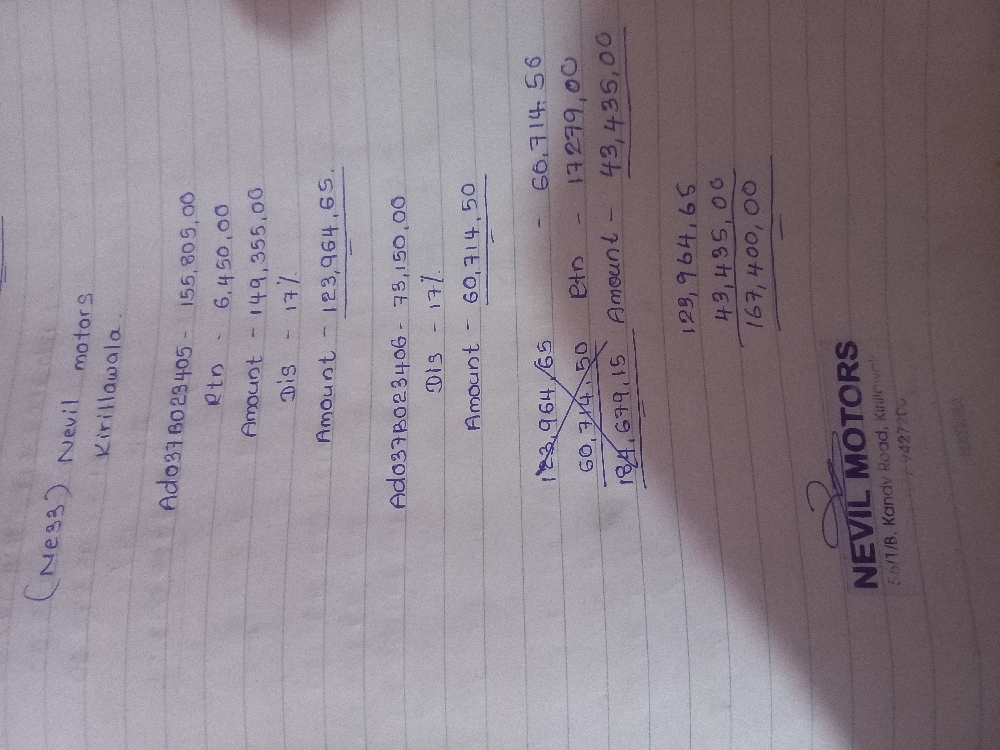 (Ne33) Nevil motors
Kirillawala.
Ad037B023405 - 155,805,00
Rtn - 6,450,00
Amount - 149,355,00
Dis - 17%
Amount - 123,964,65.
Ad037B023406 - 73,150,00
Dis - 17%
Amount - 60,714,50
123,964,65 - 60,714,50
60,714,50 Rtn - 17279,00
184,679,15 Amount - 43,435,00
123,964,65
43,435,00
167,400,00
NEVIL MOTORS
/1/B, Kandy Road,